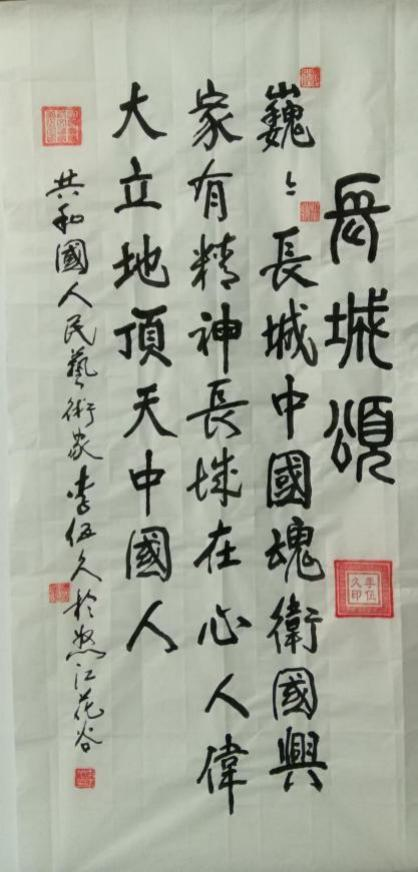 長城頌
巍〻長城中國魂衛國興
家有精神長城在心人偉
大立地頂天中國人
共和國人民藝術家李伍久於怒江花谷
李伍久印